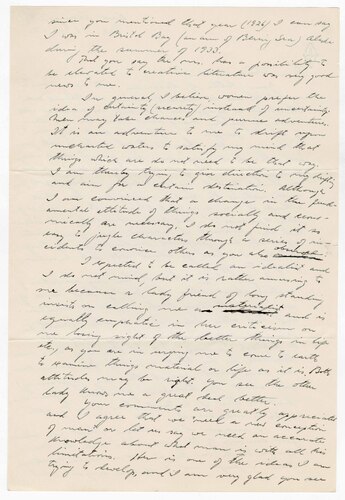 since you mentioned that year (1926) I can say
I was in Bristol Bay (an arm of Bering Sea) Alaska
during the summer of 1933.
That you say the mss. has a possibility to
be elevated to creative literature was very good
news to me.
In general, I believe women prefer the
idea of certainty (security) instead of uncertainty.
Men may take chances and pursue adventure.
It is an adventure to me to drift upon
uncharted water to satisfy my mind that
things which are do not need to be that way.
I am thereby trying to give direction to my drifting
and aim for a certain destination. Although
I am convinced that a change in the fund-
amental attitude of things socially and econo-
mically are necessary, I do not find it so
easy to juggle characters through a series of in-
cidents to convince others as you also
I expected to be called an idealist and
I do not mind, but it is rather amusing to
me because a lady friend of long standing
insists on calling me a materialist and is
equally emphatic in her criticism on
me losing sight of the better things in life
etc, as you are in urging me to come to earth
to examine things material or life as it is. Both
attitudes may be right. You see the other
lady knows me a great deal better.
Your comments are greatly appreciated
and I agree that we need a new conception
of man or let us say we need an accurate
knowledge about what man is with all his
limitations. This is one of the ideas I am
trying to develop, and I am very glad you see